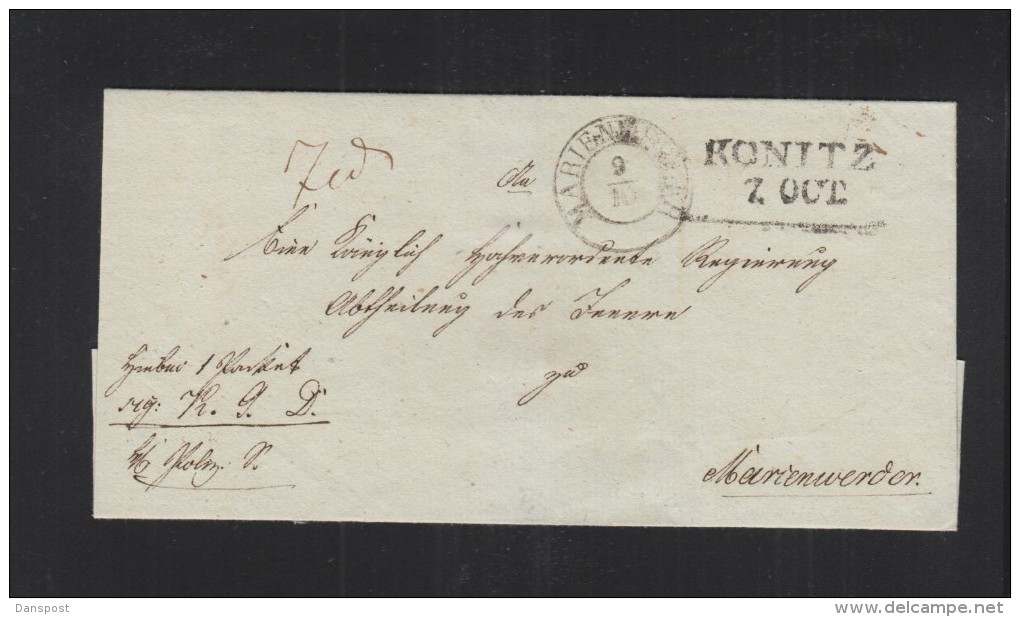 MARIENWERDER
9/10
KONITZ
7. OCT.
An
Eine Königlich Hochverordnete Regierung
Abtheilung des Innern
zu
Marienwerder.
Hiebei 1 Packet
sig: K. J. D.
S.
Danspost
www.delcampe.net